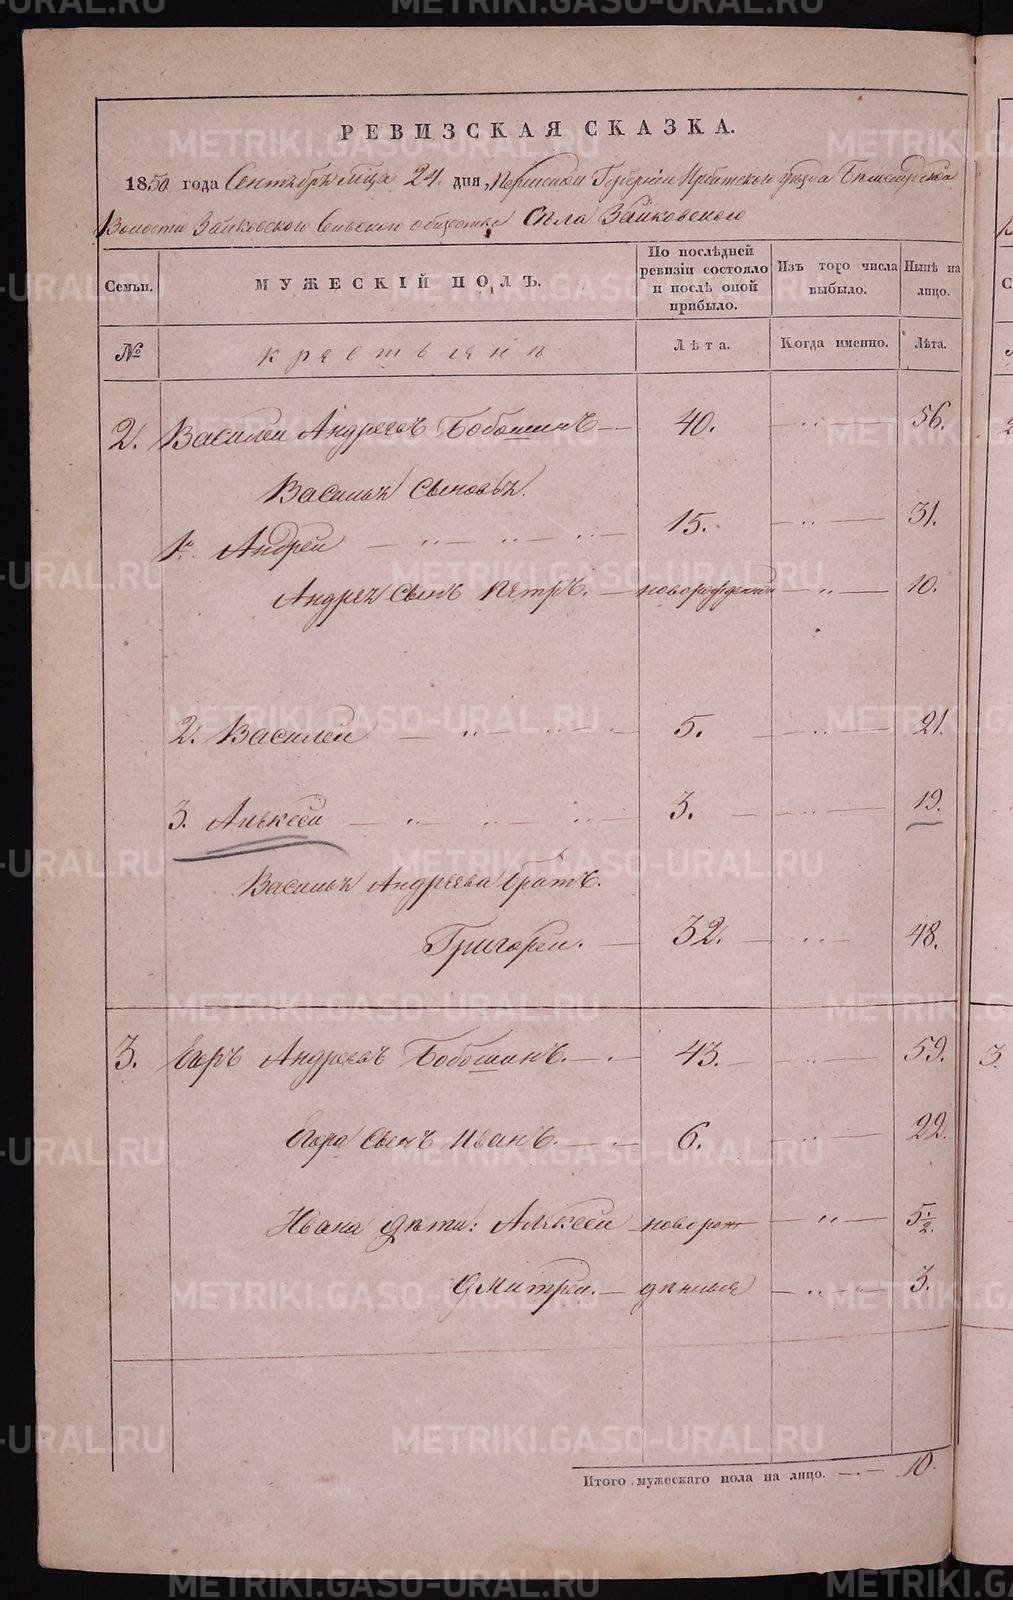 РЕВИЗСКАЯ СКАЗКА.
1850 года Сентября мѣца 24 дня, Пермской Губернiи Ирбитского уѣзда Бѣлослудской
Волости Зайковского Сельского общества Села Зайковского
Семьи. МУЖЕСКІЙ ПОЛЪ. По послѣдней ревизіи состояло и послѣ оной прибыло. Изъ того числа выбыло. Нынѣ на лицо.
№ крестьяне Лѣта. Когда именно. Лѣта.
2. Василей Андреевъ Бобошинъ 40. — „ — 56.
Васильа Сыновья.
1й Андрей — „ — „ — „ — 15. — „ — 31.
Андрея Сынъ Петръ. — новорожденной — „ — 10.
2. Василей — „ — „ — 5. — „ — 21.
3. Алексей — „ — „ — „ — 3. — „ — 19.
Василья Андреева братъ.
Григорей. — 32. — „ — 48.
3. Егоръ Андреевъ Бобошинъ. — 43. — „ — 59.
Егора Сынъ Иванъ. — 6. — „ — 22.
Ивана дѣти: Алексей новорож — „ — 5 1/2.
Дмитрей. — денныя — „ — 3.
Итого мужескаго пола на лицо. — 10.
METRIKI.GASO-URAL.RU